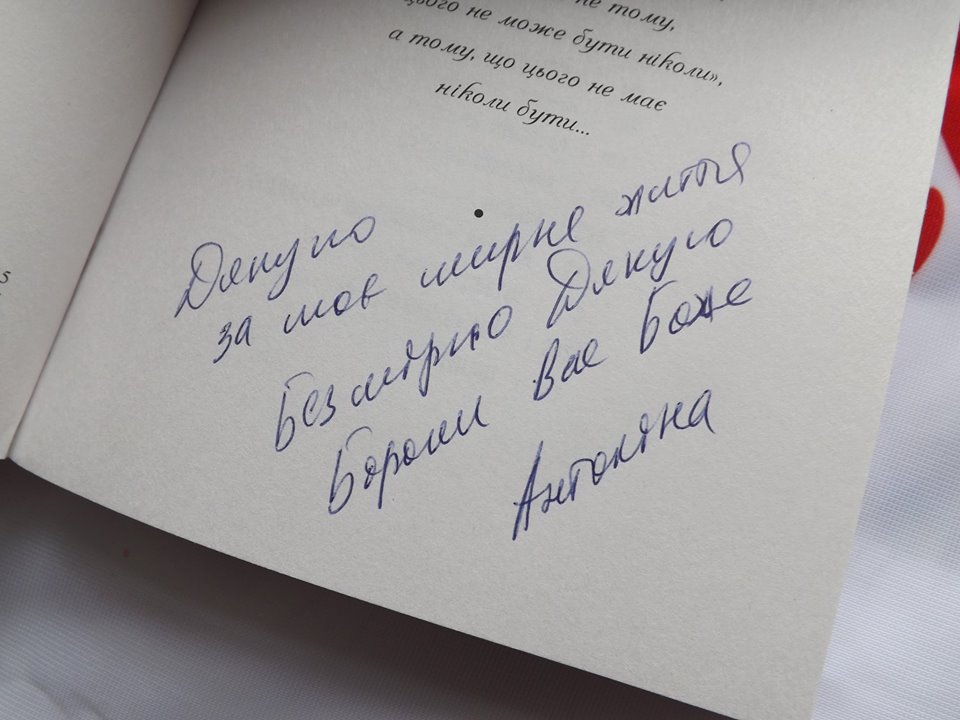 не тому,
цього не може бути ніколи»,
а тому, що цього не має
ніколи бути...
5
Дякую
за моє мирне життя
Безмірно Дякую
Борони вас Боже
Антоніна